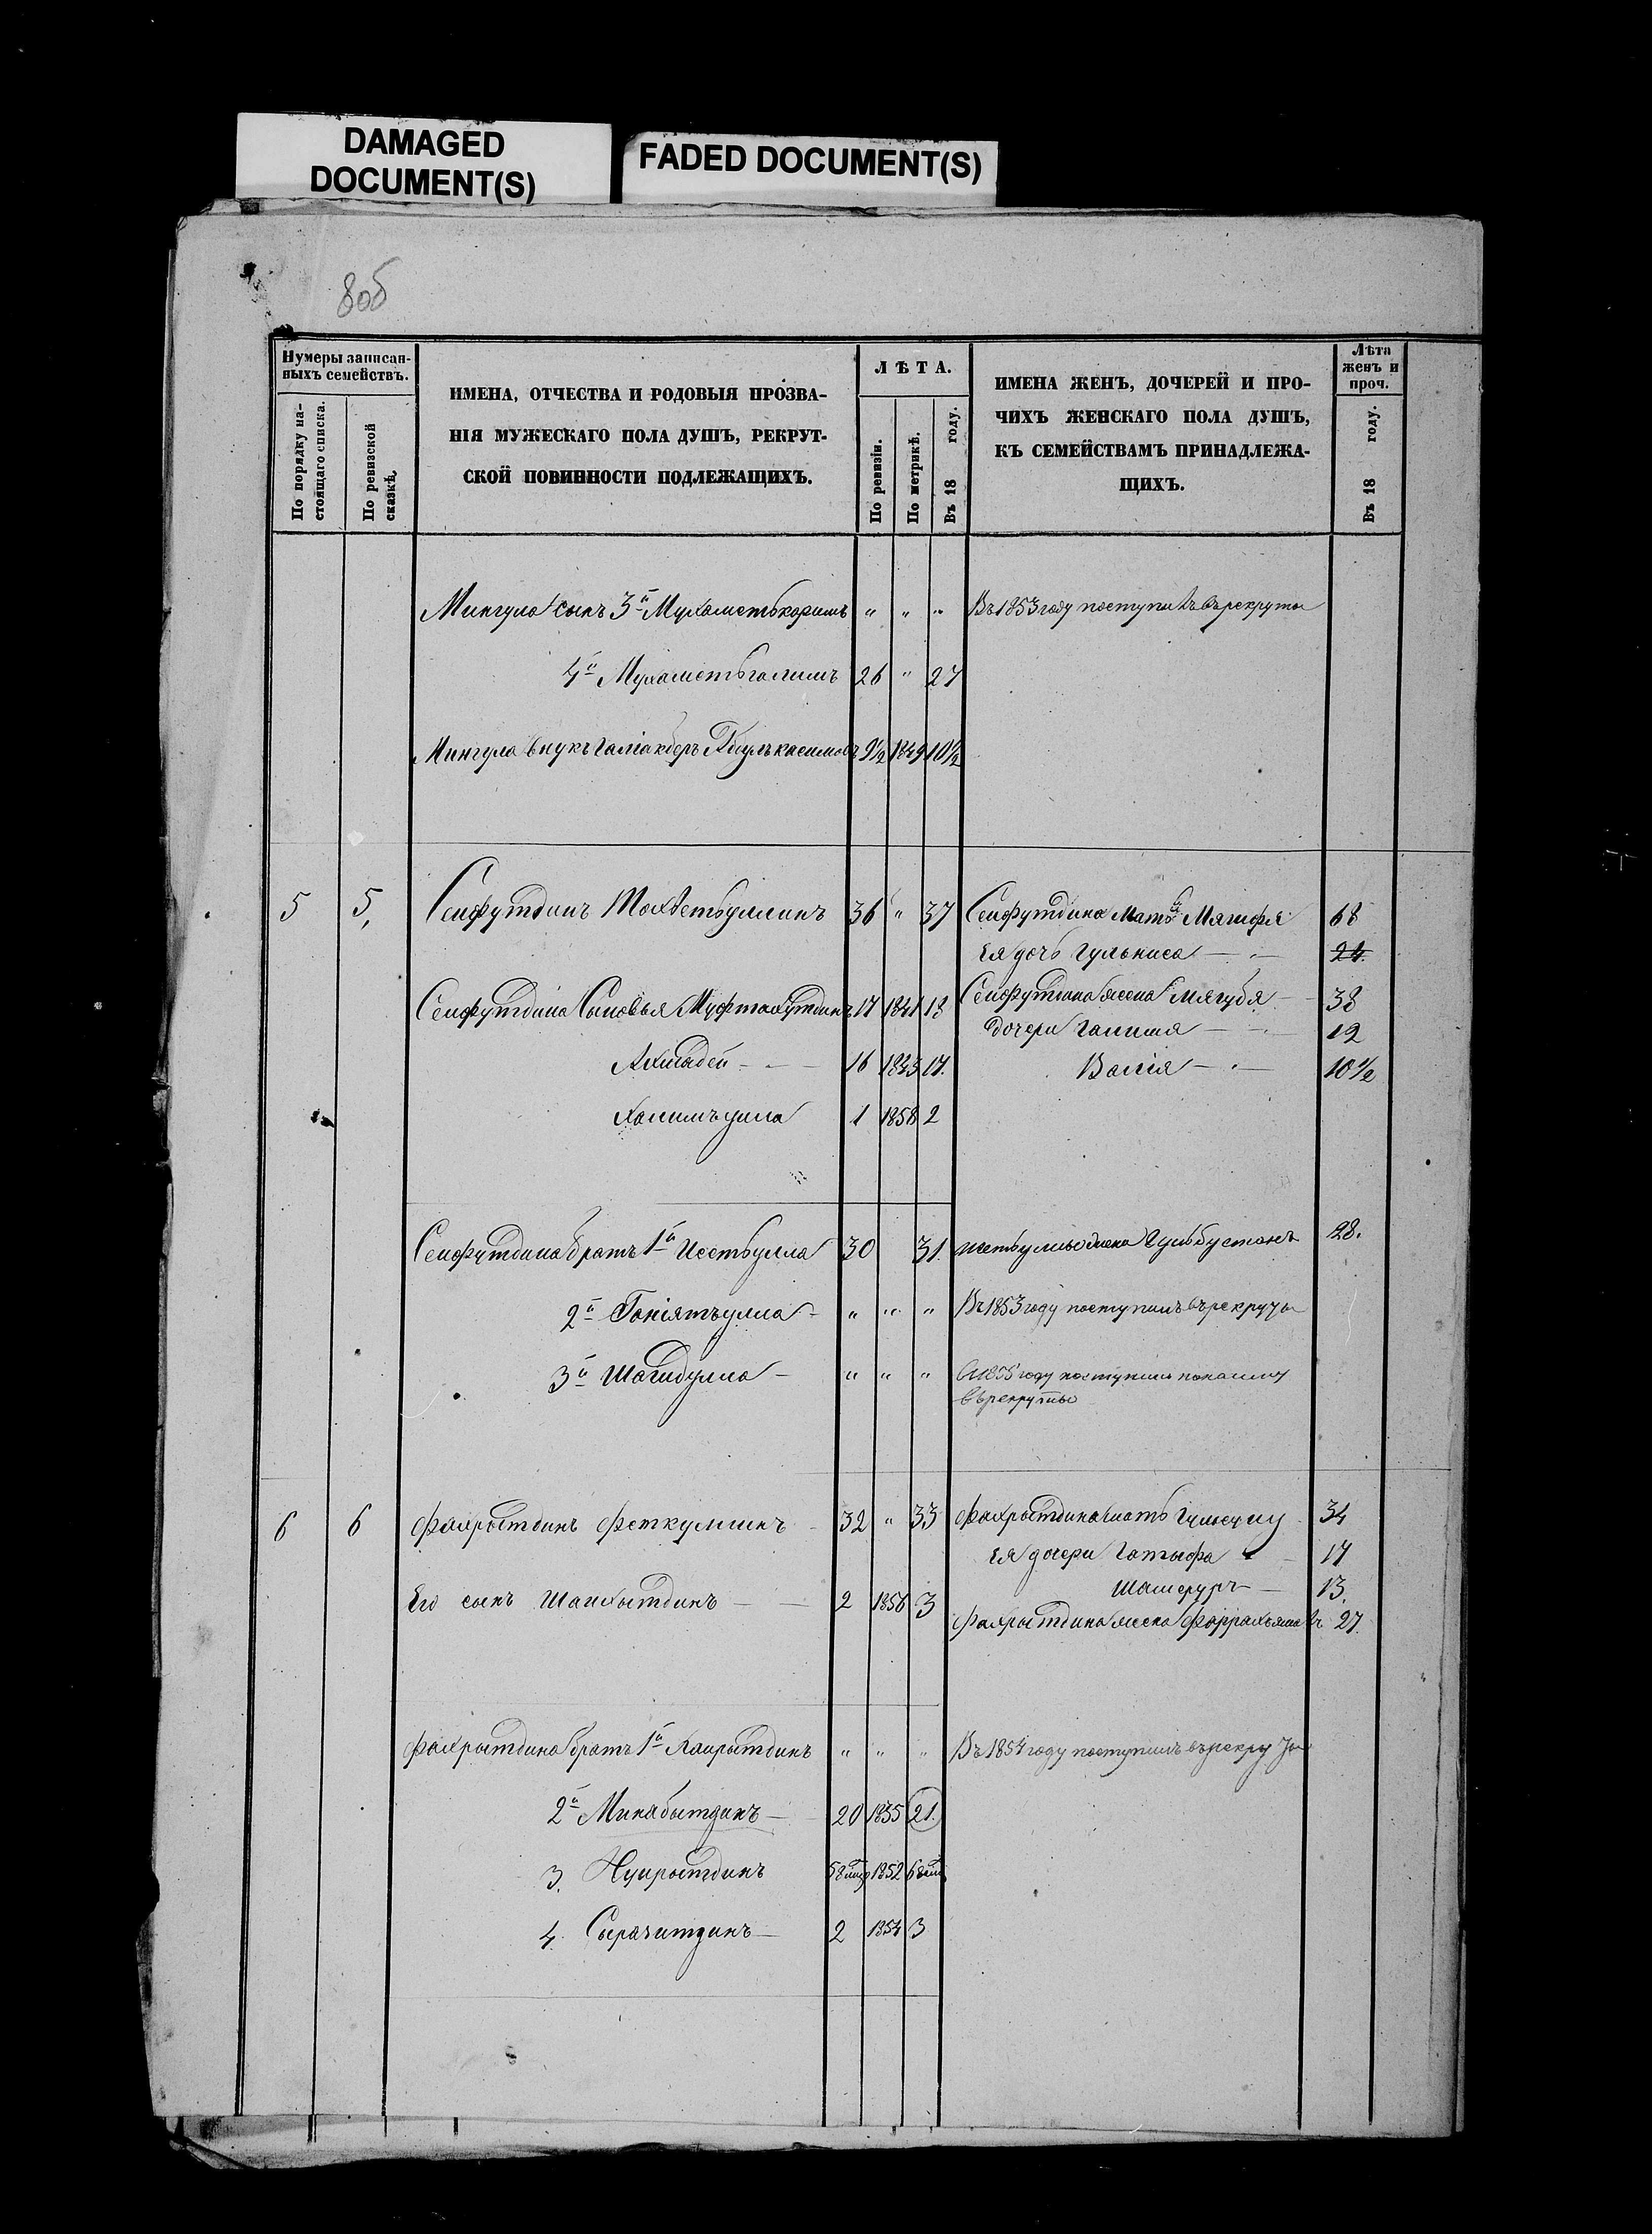 DAMAGED
DOCUMENT(S)
FADED DOCUMENT(S)
8об
Нумеры записан-
ныхъ семействъ.
По порядку на-
стоящаго списка.
По ревизской
сказкѣ.
ИМЕНА, ОТЧЕСТВА И РОДОВЫЯ ПРОЗВА-
НІЯ МУЖЕСКАГО ПОЛА ДУШЪ, РЕКРУТ-
СКОЙ ПОВИННОСТИ ПОДЛЕЖАЩИХЪ.
ЛѢТА.
По ревизіи.
По метрикѣ.
Въ 18 году.
ИМЕНА ЖЕНЪ, ДОЧЕРЕЙ И ПРО-
ЧИХЪ ЖЕНСКАГО ПОЛА ДУШЪ,
КЪ СЕМЕЙСТВАМЪ ПРИНАДЛЕЖА-
ЩИХЪ.
Лѣта
женъ и
проч.
Въ 18 году.
Мингула сынъ 3й Мухаметькаримъ " " " Въ 1853 году поступилъ въ рекруты
4й Мухаметьгалимъ 26 " 27
Мингула внукъ Галіакберъ Абулькасимовъ 9½ 1849 10½
5 5, Сейфутдинъ 36 " 37 Сейфутдина мать 68
Ея дочь Гульниса 24.
Сейфутдина сыновья Муфтахутдинъ 17 1841 18 Сейфутдина жена Мягубя 38
дочери Галима 12
Ахмадей 16 1843 17. Валія 10½
Халимъулла 1 1858 2
Сейфутдина братъ 1й 30 31. жена Гульбустанъ 28.
2й Ганіятъулла " " " Въ 1853 году поступилъ въ рекруты
3й Шагидулла " " " 1855 году поступилъ
въ рекруты
6 6 Фахрытдинъ Феткуллинъ 32 " 33 Фахрытдина мать 34
Ея дочери 17
Его сынъ Шаихытдинъ 2 1856 3 13.
Фахрытдина жена 27.
Фахрытдина братъ 1й Хаирытдинъ " " " Въ 1854 году поступилъ въ рекруты
2й 20 1835 21.
3. Нурытдинъ 1852
4. 2 1854 3